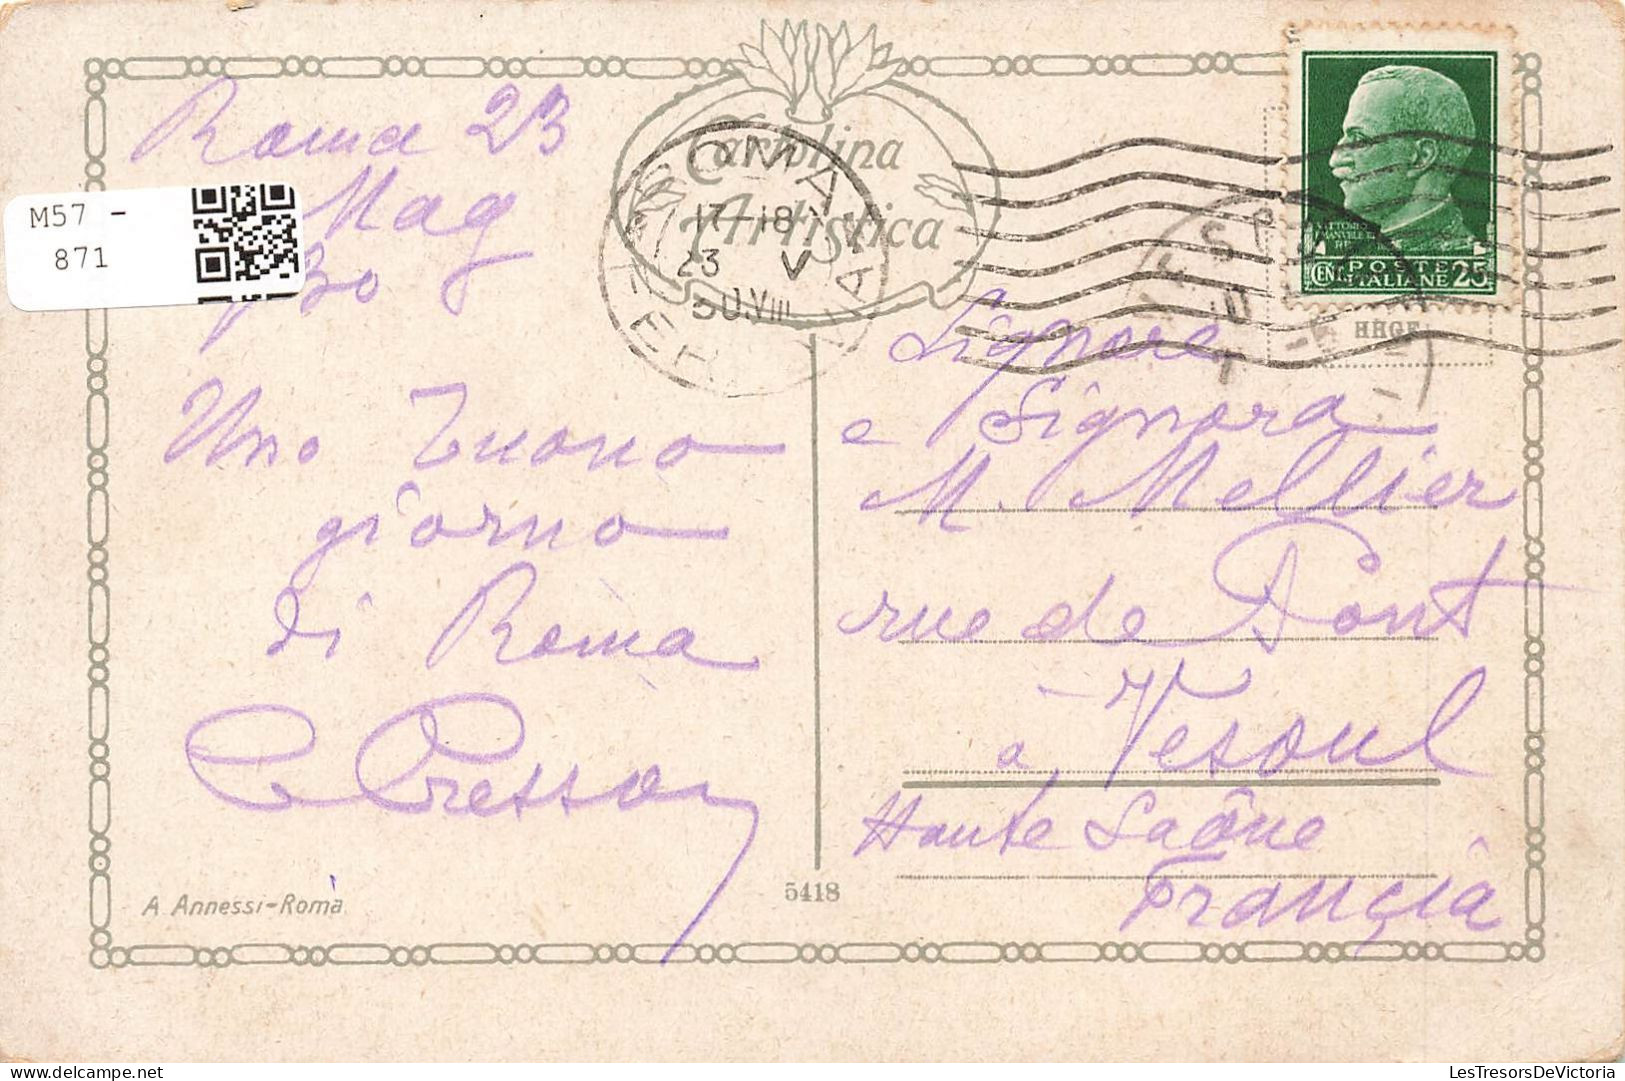 Cartolina
Artistica
Roma 23
Mag
930
Uno Buono
giorno
di Roma
A. Annessi-Roma
5418
ROMA
17-18
23 V
30.VIII
FERROVIA
VITTORIO
EMANUELE III
RE
CENT POSTE ITALIANE 25
Signore
e Signora
M. Mellier
rue de Pont
a Vesoul
Haute Saône
Françia
M57 -
871
delcampe.net
LesTresorsDeVictoria